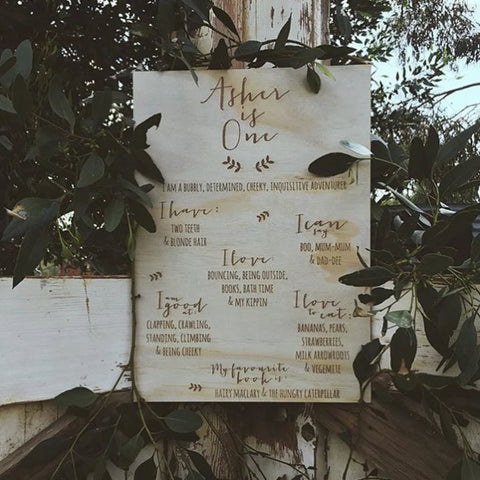 Asher
is
One
I AM A BUBBLY, DETERMINED, CHEEKY, INQUISITIVE ADVENTURER
I have:
TWO TEETH
& BLONDE HAIR
I can
say
BOO, MUM-MUM
& DAD-DEE
I love
BOUNCING, BEING OUTSIDE,
BOOKS, BATH TIME
& MY KIPPIN
I am
good
at:
CLAPPING, CRAWLING,
STANDING, CLIMBING
& BEING CHEEKY
I love
to eat:
BANANAS, PEARS,
STRAWBERRIES,
MILK ARROWROOTS
& VEGEMITE
My favourite
book is:
HAIRY MACLARY & THE HUNGRY CATERPILLAR